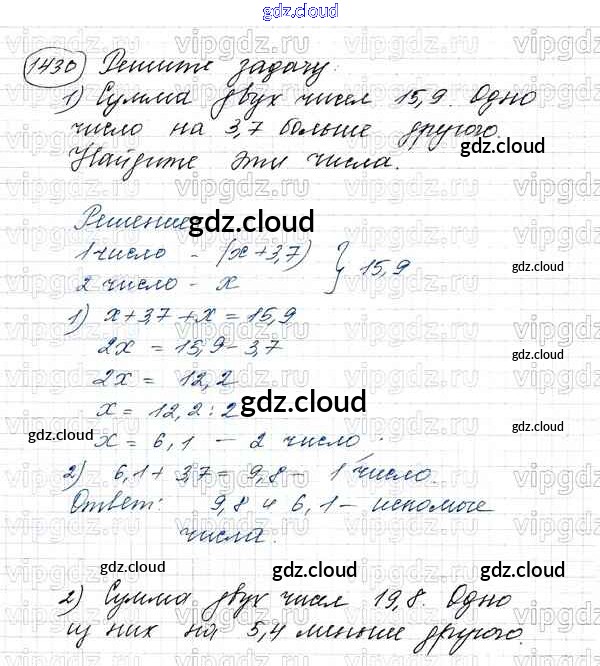 gdz.cloud
1430) Решите задачу.
1) Сумма двух чисел 15,9. Одно
число на 3,7 больше другого.
Найдите эти числа.
gdz.cloud
Решение
gdz.cloud
1 число - (x+3,7) } 15,9
2 число - x
gdz.cloud
1) x+3,7+x=15,9
2x = 15,9-3,7
gdz.cloud
2x = 12,2
x = 12,2:2
gdz.cloud
x = 6,1 - 2 число.
gdz.cloud
gdz.cloud
2) 6,1+3,7=9,8- 1 число.
Ответ: 9,8 и 6,1- искомые
числа.
gdz.cloud
gdz.cloud
gdz.cloud
2) Сумма двух чисел 19,8. Одно
из них на 5,4 меньше другого.
gdz.cloud
gdz.cloud